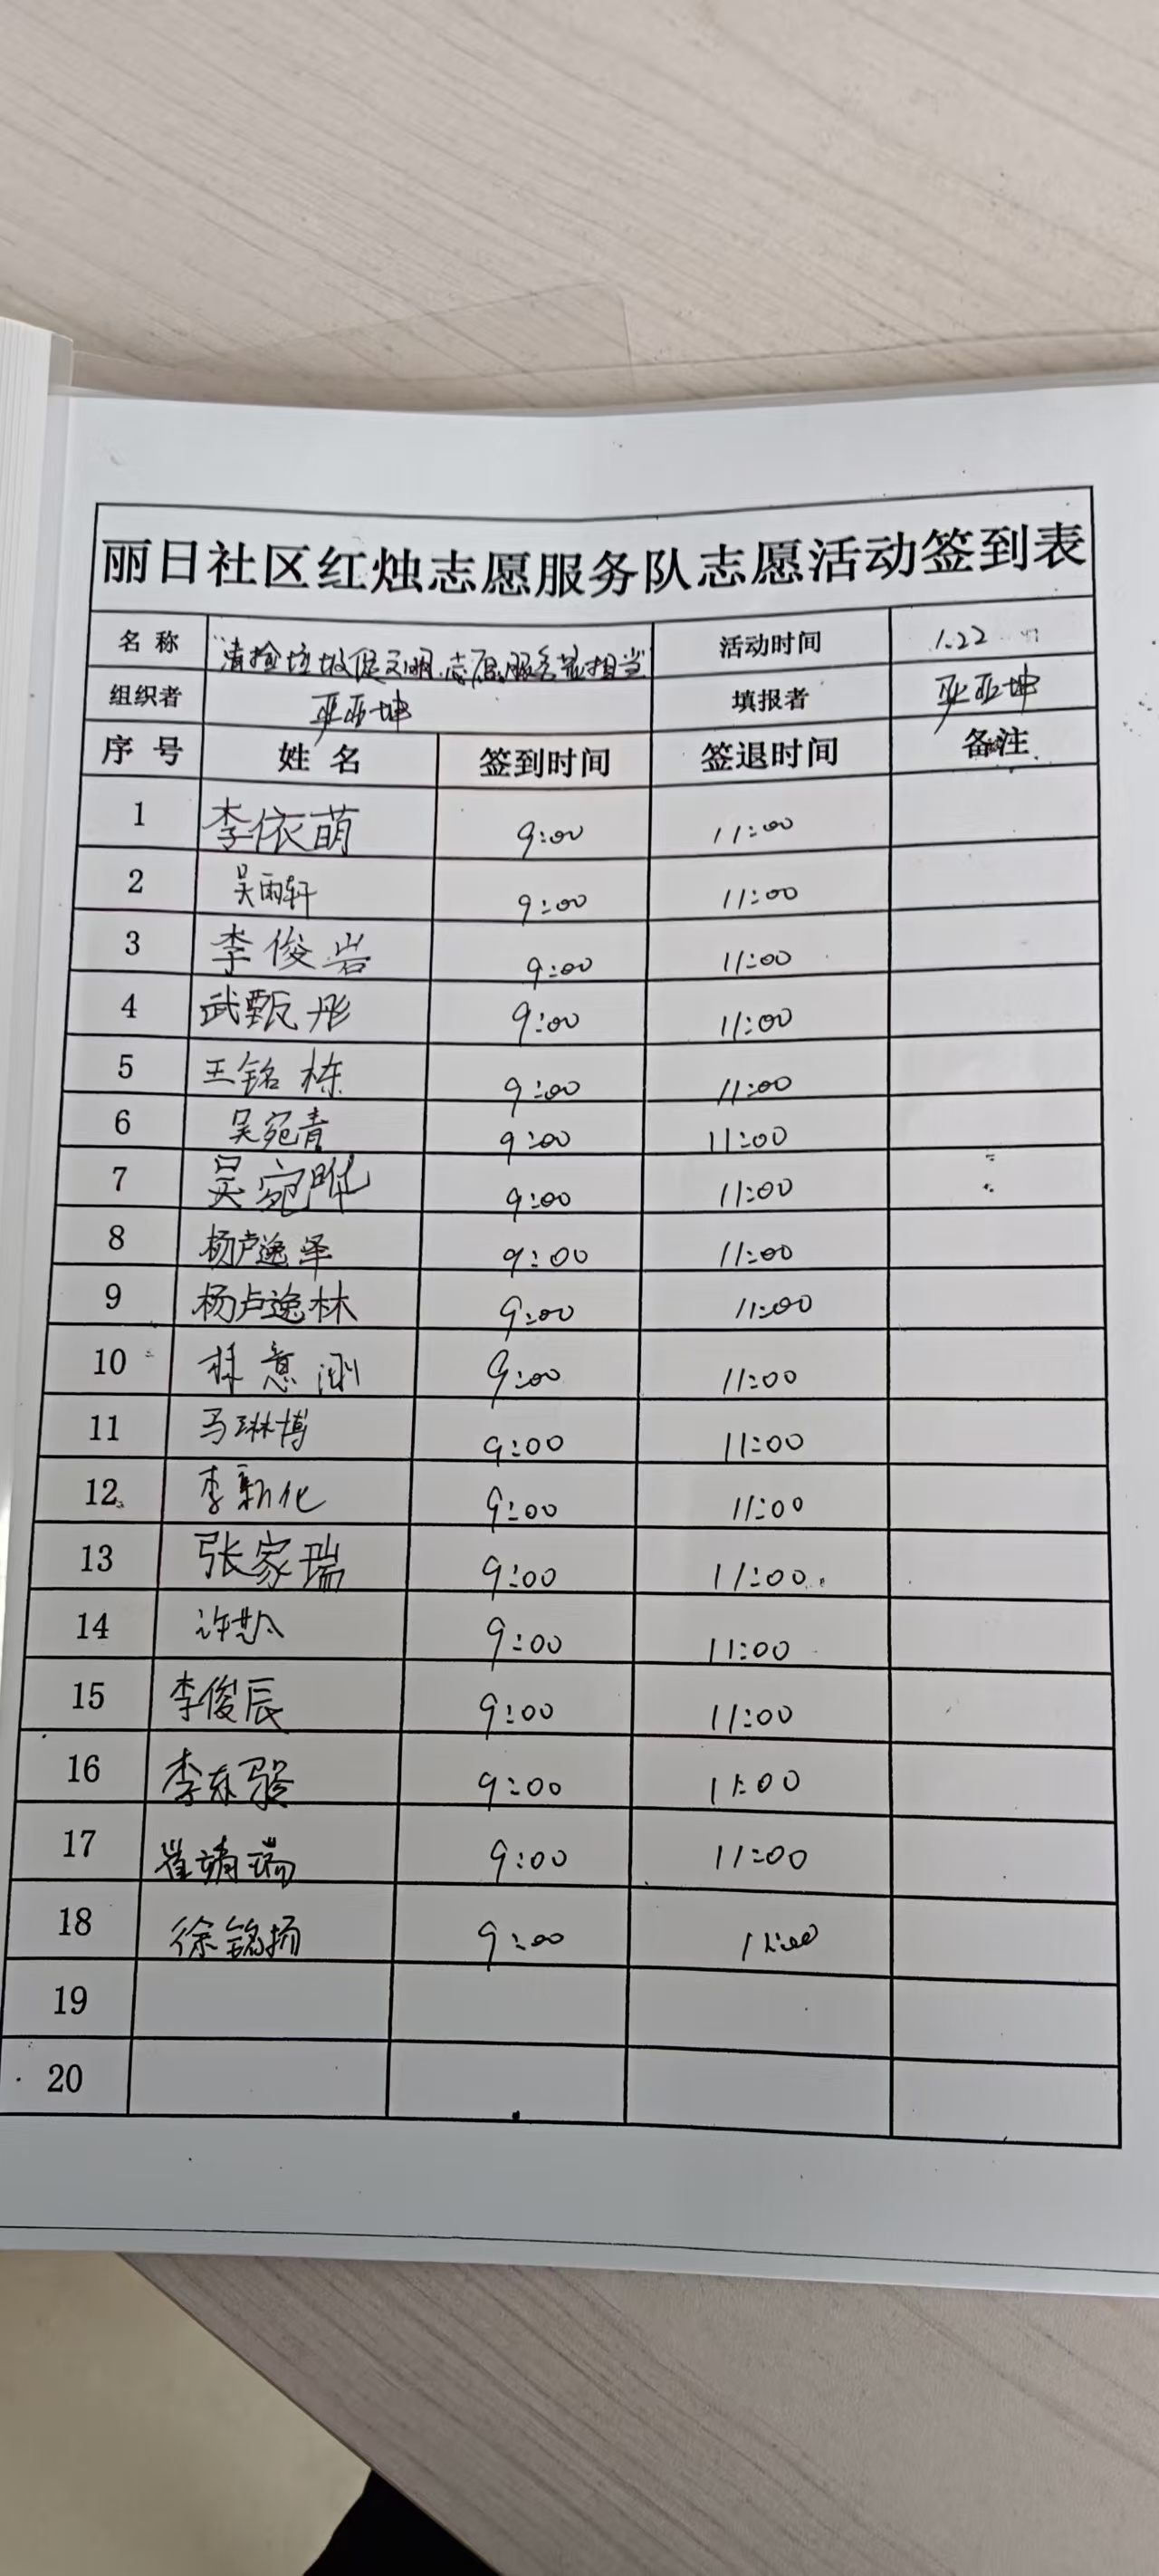 丽日社区红烛志愿服务队志愿活动签到表
名 称 "清捡垃圾促文明,志愿服务 担当 活动时间 1.22
组织者 亚坤 填报者 亚坤
序 号 姓 名 签到时间 签退时间 备注
1 李依萌 9:00 11:00
2 吴雨轩 9:00 11:00
3 李俊岩 9:00 11:00
4 武甄彤 9:00 11:00
5 王铭栋 9:00 11:00
6 吴宛青 9:00 11:00
7 吴宛 9:00 11:00
8 杨卢逸泽 9:00 11:00
9 杨卢逸林 9:00 11:00
10 林意 9:00 11:00
11 马琳博 9:00 11:00
12 李新化 9:00 11:00
13 张家瑞 9:00 11:00
14 许 9:00 11:00
15 李俊辰 9:00 11:00
16 李东骏 9:00 11:00
17 崔靖瑞 9:00 11:00
18 徐铭扬 9:00 11:00
19
20